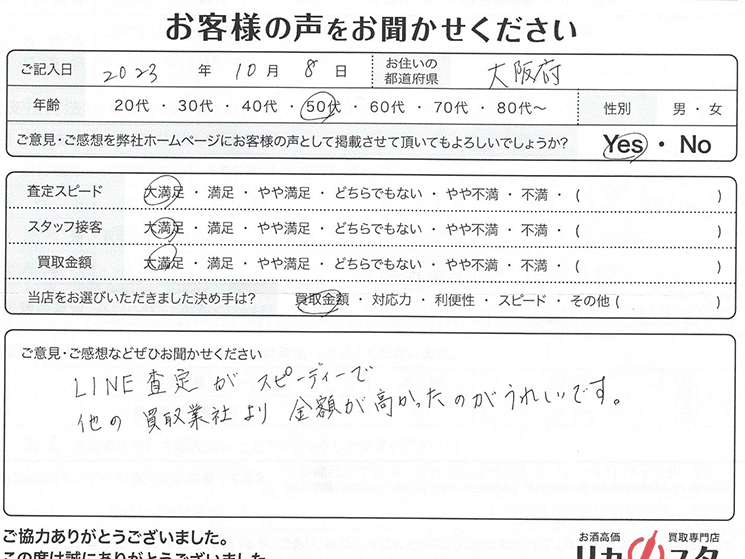 お客様の声をお聞かせください
ご記入日 2023 年 10 月 8 日 お住いの都道府県 大阪府
年齢 20代 ・ 30代 ・ 40代 ・ 50代 ・ 60代 ・ 70代 ・ 80代〜 性別 男 ・ 女
ご意見・ご感想を弊社ホームページにお客様の声として掲載させて頂いてもよろしいでしょうか? Yes ・ No
査定スピード 大満足 ・ 満足 ・ やや満足 ・ どちらでもない ・ やや不満 ・ 不満 ・ ( )
スタッフ接客 大満足 ・ 満足 ・ やや満足 ・ どちらでもない ・ やや不満 ・ 不満 ・ ( )
買取金額 大満足 ・ 満足 ・ やや満足 ・ どちらでもない ・ やや不満 ・ 不満 ・ ( )
当店をお選びいただきました決め手は? 買取金額 ・ 対応力 ・ 利便性 ・ スピード ・ その他 ( )
ご意見・ご感想などぜひお聞かせください
LINE査定がスピーディーで
他の買取業社より金額が高かったのがうれしいです。
ご協力ありがとうございました。
お酒高価 買取専門店
この度は誠にありがとうございました